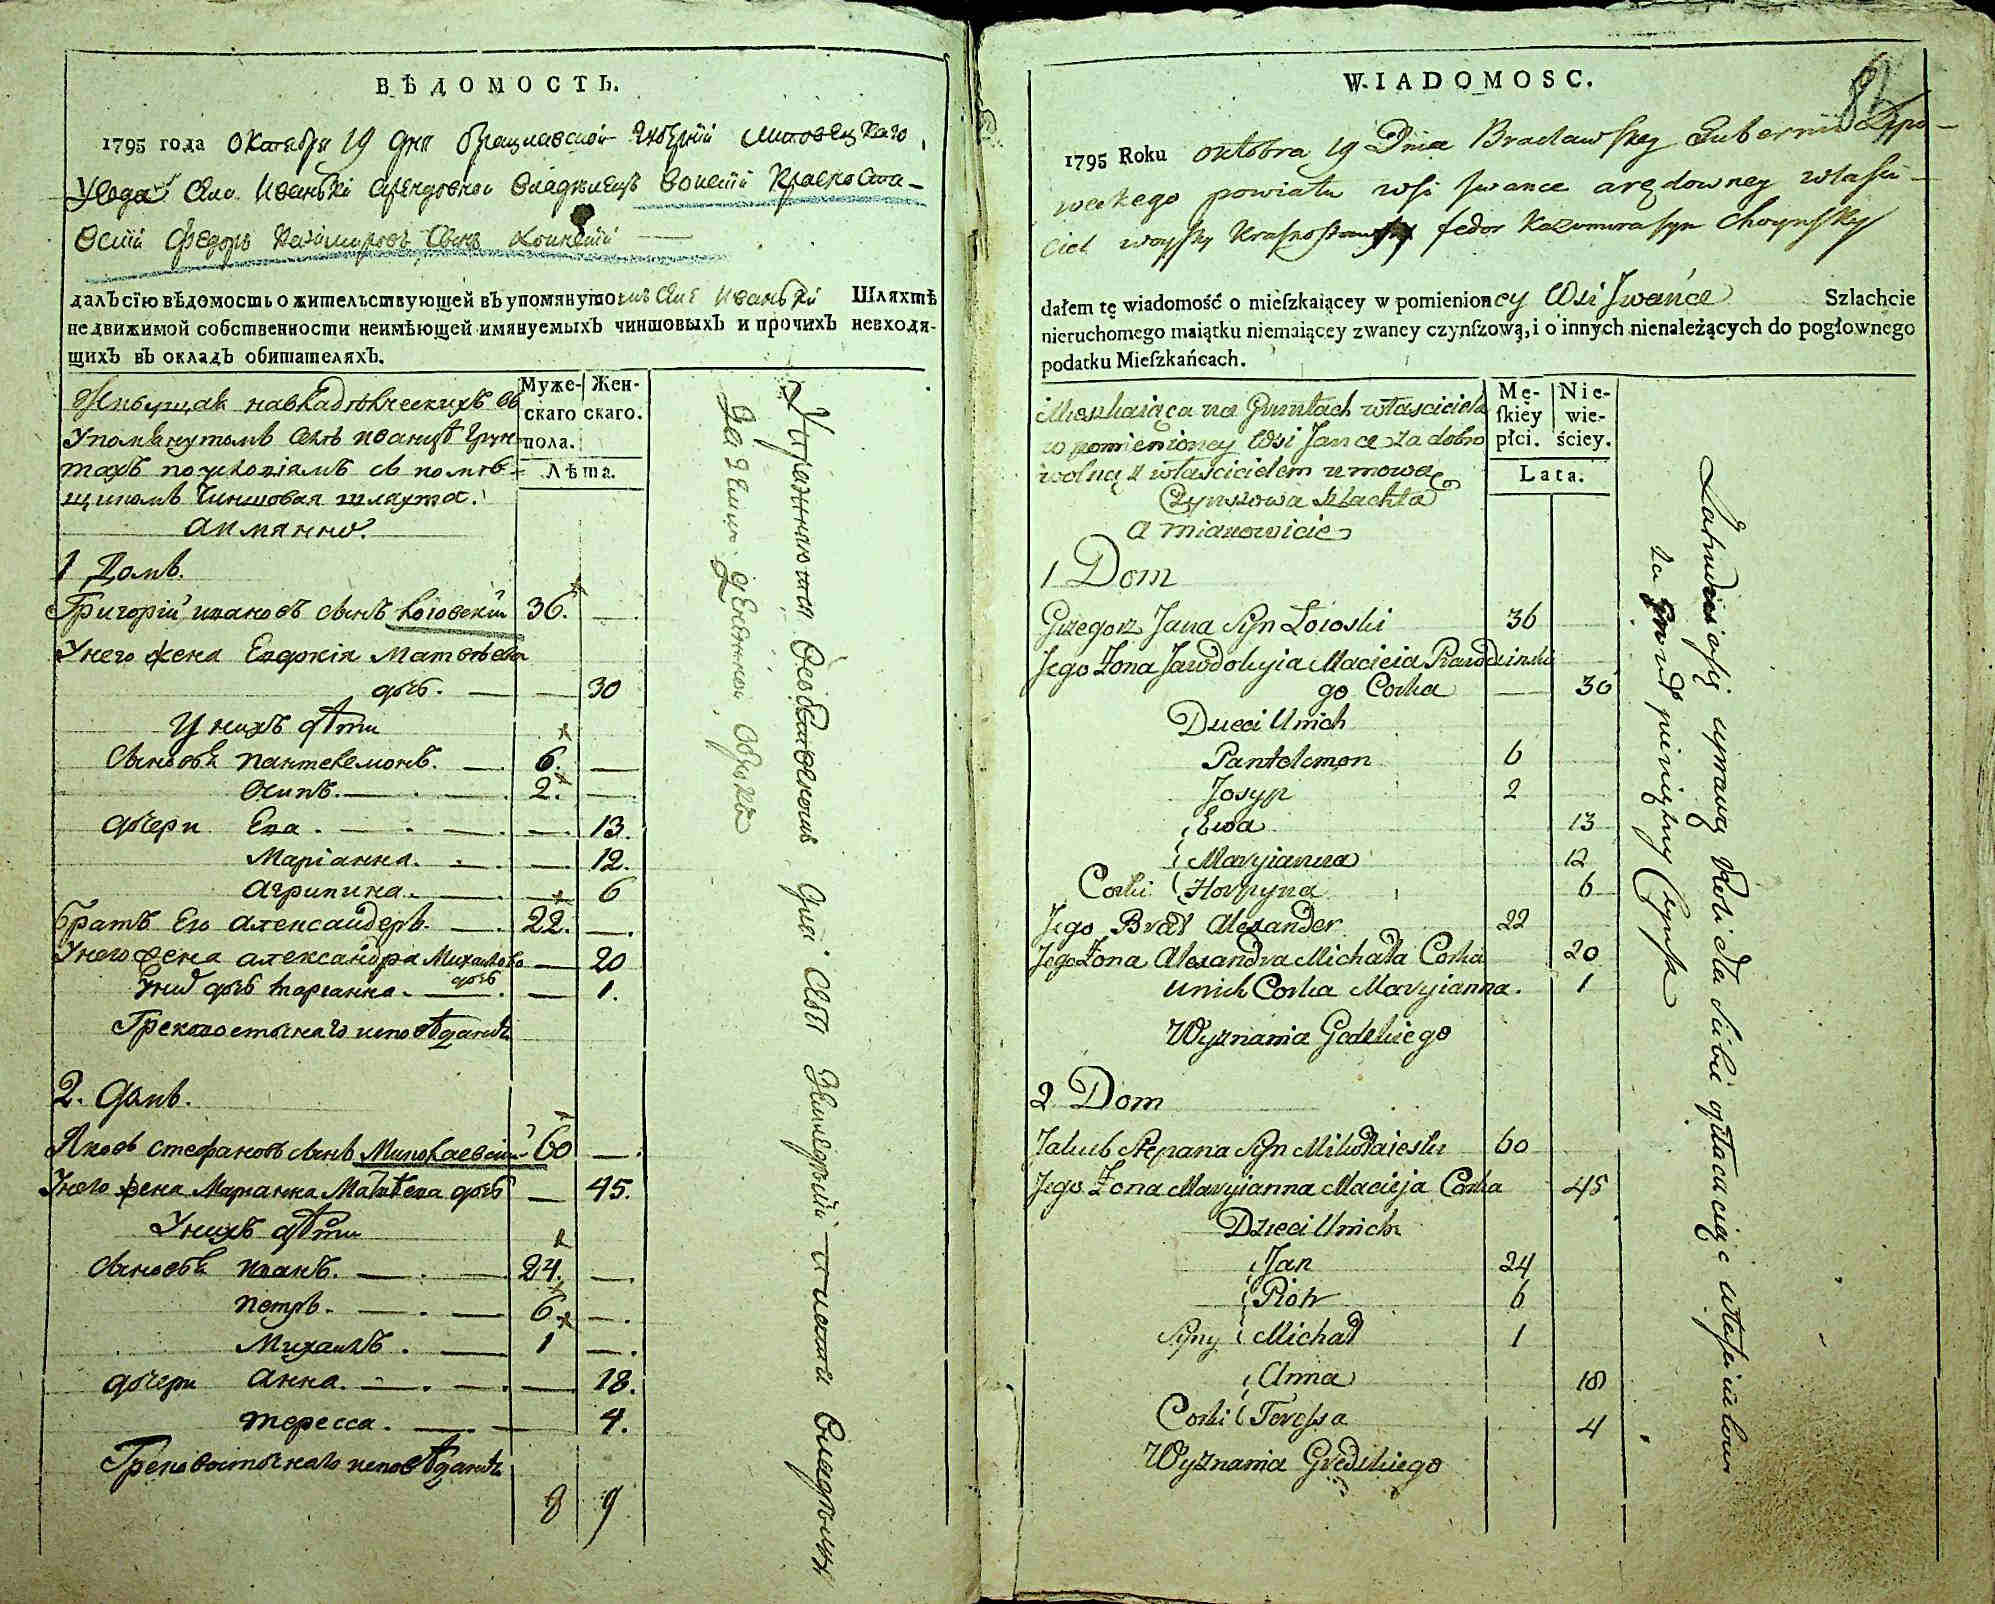 ВѢДОМОСТЬ.
1795 года Октября 19 дня Брацлавской губернїи Липовецкаго
Уезда Села Иваньки арендовной владѣлецъ войскїй Красноста-
вскїй Федоръ Казимировъ сынъ Хоинскїй
далъ сїю вѣдомость о жительствующей въ упомянутомъ селе Иваньки Шляхтѣ
недвижимой собственности неимѣющей имянуемыхъ чиншовыхъ и прочихъ невходя-
щихъ въ окладъ обитателяхъ.
Живущая на владѣльческихъ въ
упомянутомъ селѣ Иванце грун-
тахъ по условїямъ съ помѣ-
щикомъ Чиншовая шляхта.
а имянно.
Муже-
скаго
пола.
Жен-
скаго.
Лѣта.
1 Домъ.
Григорїй Ивановъ сынъ Логовскїй 36.
У него жена Евдокїя Матвѣева
дочь. 30
У нихъ дѣти
Сыновья Пантелемонъ. 6.
Осипъ. 2.
дочери Ева. 13.
Марїанна. 12.
Агрипина. 6
Братъ Его Александеръ. 22.
У него жена Александра Михайлова
дочь 20
У них дочь Марїанна. 1.
Грековосточнаго исповѣданїя
2. Домъ.
Яковъ Стефановъ сынъ Миколаевскїй 60
У него жена Марїанна Матвѣева дочь 45.
У нихъ дѣти
Сыновья Иванъ. 24.
Петръ. 6.
Михаилъ. 1
дочери Анна. 18.
Тересса. 4.
Грековосточнаго исповѣданїя
8 9
Упражняются Особственномъ для себя Земледѣлїи платя владѣльцу
За Землю денежной Оброкъ
WIADOMOSC.
1795 Roku oktobra 19 Dnia Bracławskey Gubernii Lipo-
weckego powiatu wsi Iwance arędowney własci-
ciel woyski Krasnostawsky fedor Kazimira syn Choynsky
dałem tę wiadomość o mieſzkaiącey w pomienioney Wsi Iwańce Szlachcie
nieruchomego maiątku niemaiącey zwaney czynſzową, i o innych nienależących do pogłownego
podatku Mieſzkańcach.
Mieszkaiąca na Gruntach własciciela
w pomienioney Wsi Jance za dobro
wolną z własicielem umową
Czynszowa Szlachta
a mianowicie
Mę-
ſkiéy
płci.
Nie-
wie-
ściey.
Lata.
1 Dom
Grzegorz Jana Syn Łoioski 36
Jego Zona Jawdokyia Macieia Rawdzinski
go Corka 30
Dzieci Unich
Pantelemon 6
Josyp 2
Ewa 13
Maryianna 12
Corki Horpyna 6
Jego Brat Alexander 22
Jego Zona Alexandra Michała Corka 20
Unich Corka Maryianna. 1
Wyznania Greckiego
2 Dom
Jakub Stepana Syn Mikołaieski 60
Jego Zona Maryianna Macieja Corka 45
Dzieci Unich
Jan 24
Piotr 6
Syny Michał 1
Anna 18
Corki Teressa 4
Wyznania Greckiego
Zatrudniaiąsię uprawą Roli dla Siebie opłacaiąc własicielowi
za Grunt pieniężny Czynsz